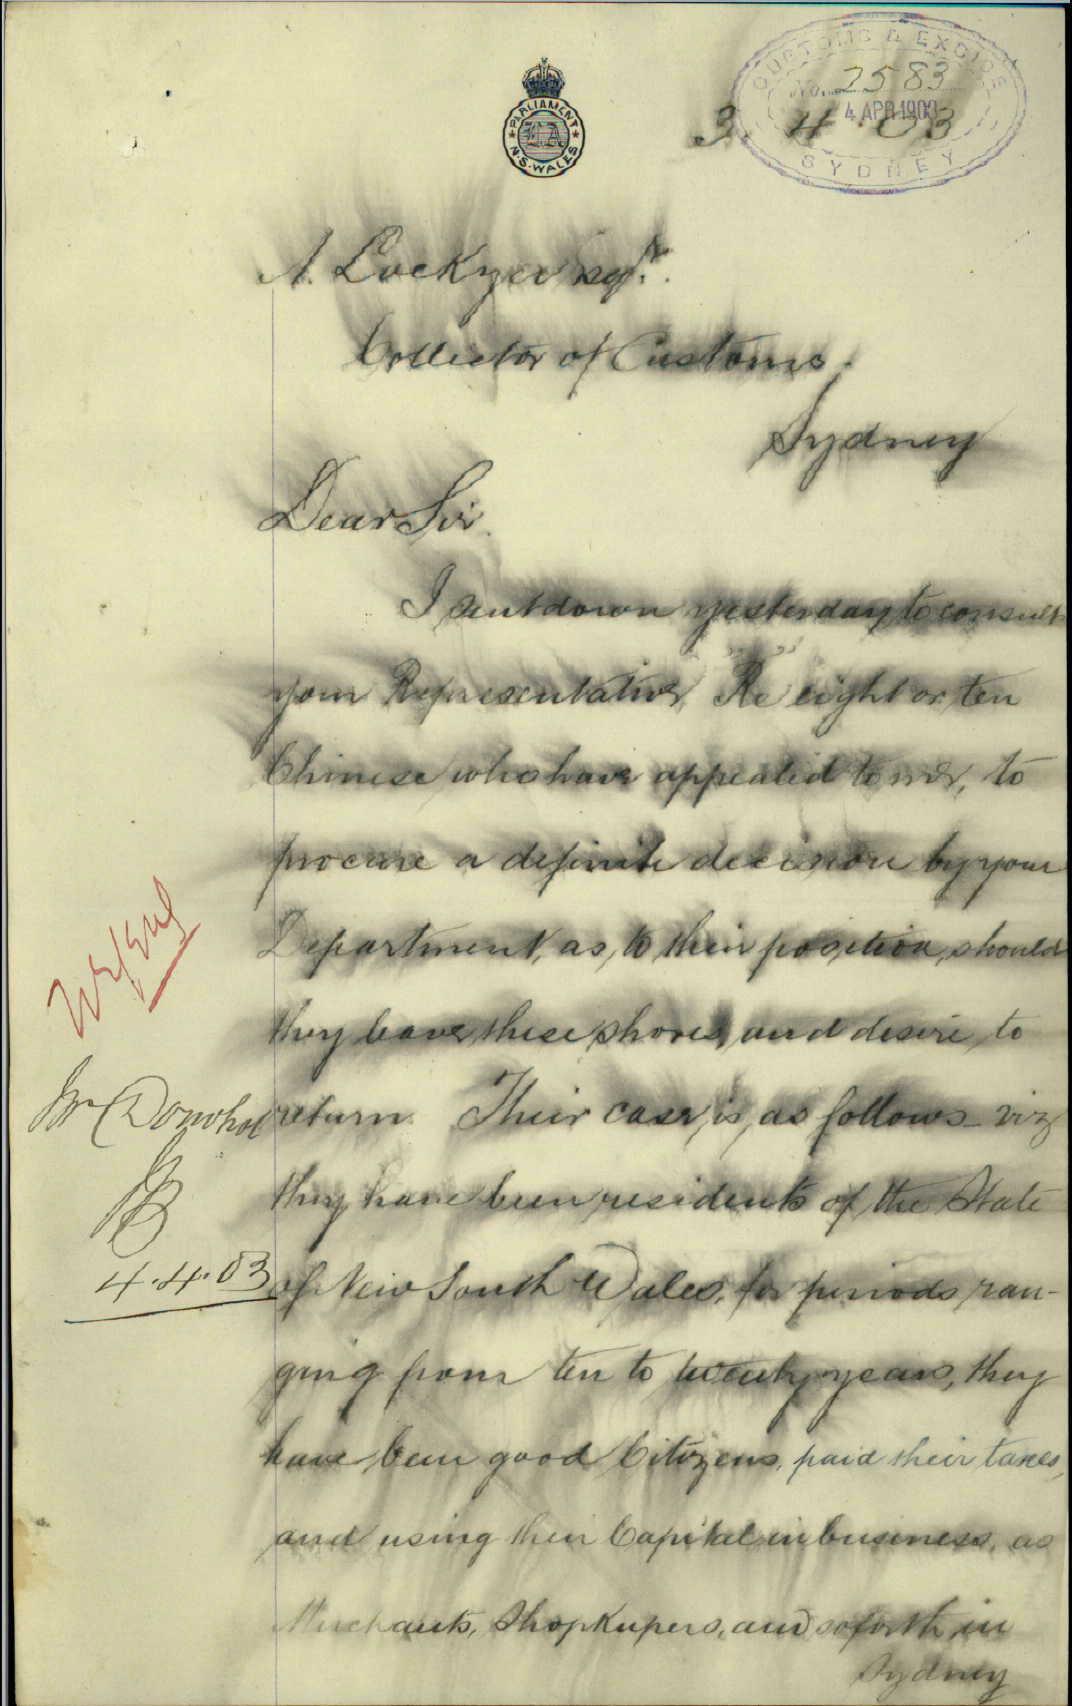 CUSTOMS & EXCISE
No. 2583
4 APR 1903
SYDNEY
PARLIAMENT
N.S. WALES
3. 4. 03
N. Lockyer Esqr.
Collector of Customs.
Sydney
Dear Sir.
I sent down yesterday to consult
your Representative, "Re" eight or ten
Chinese who have appealed to me, to
procure a definite decision by your
Department, as, to their position, should
they leave these shores, and desire to
return. Their case, is, as follows - viz
they have been residents of the State
of New South Wales, for periods ran-
ging from ten to twenty years, they
have been good Citizens, paid their taxes,
and using their Capital in business, as
Merchants, Shopkeepers, and so forth, in
Sydney
Mr Donohoe
4.4.03